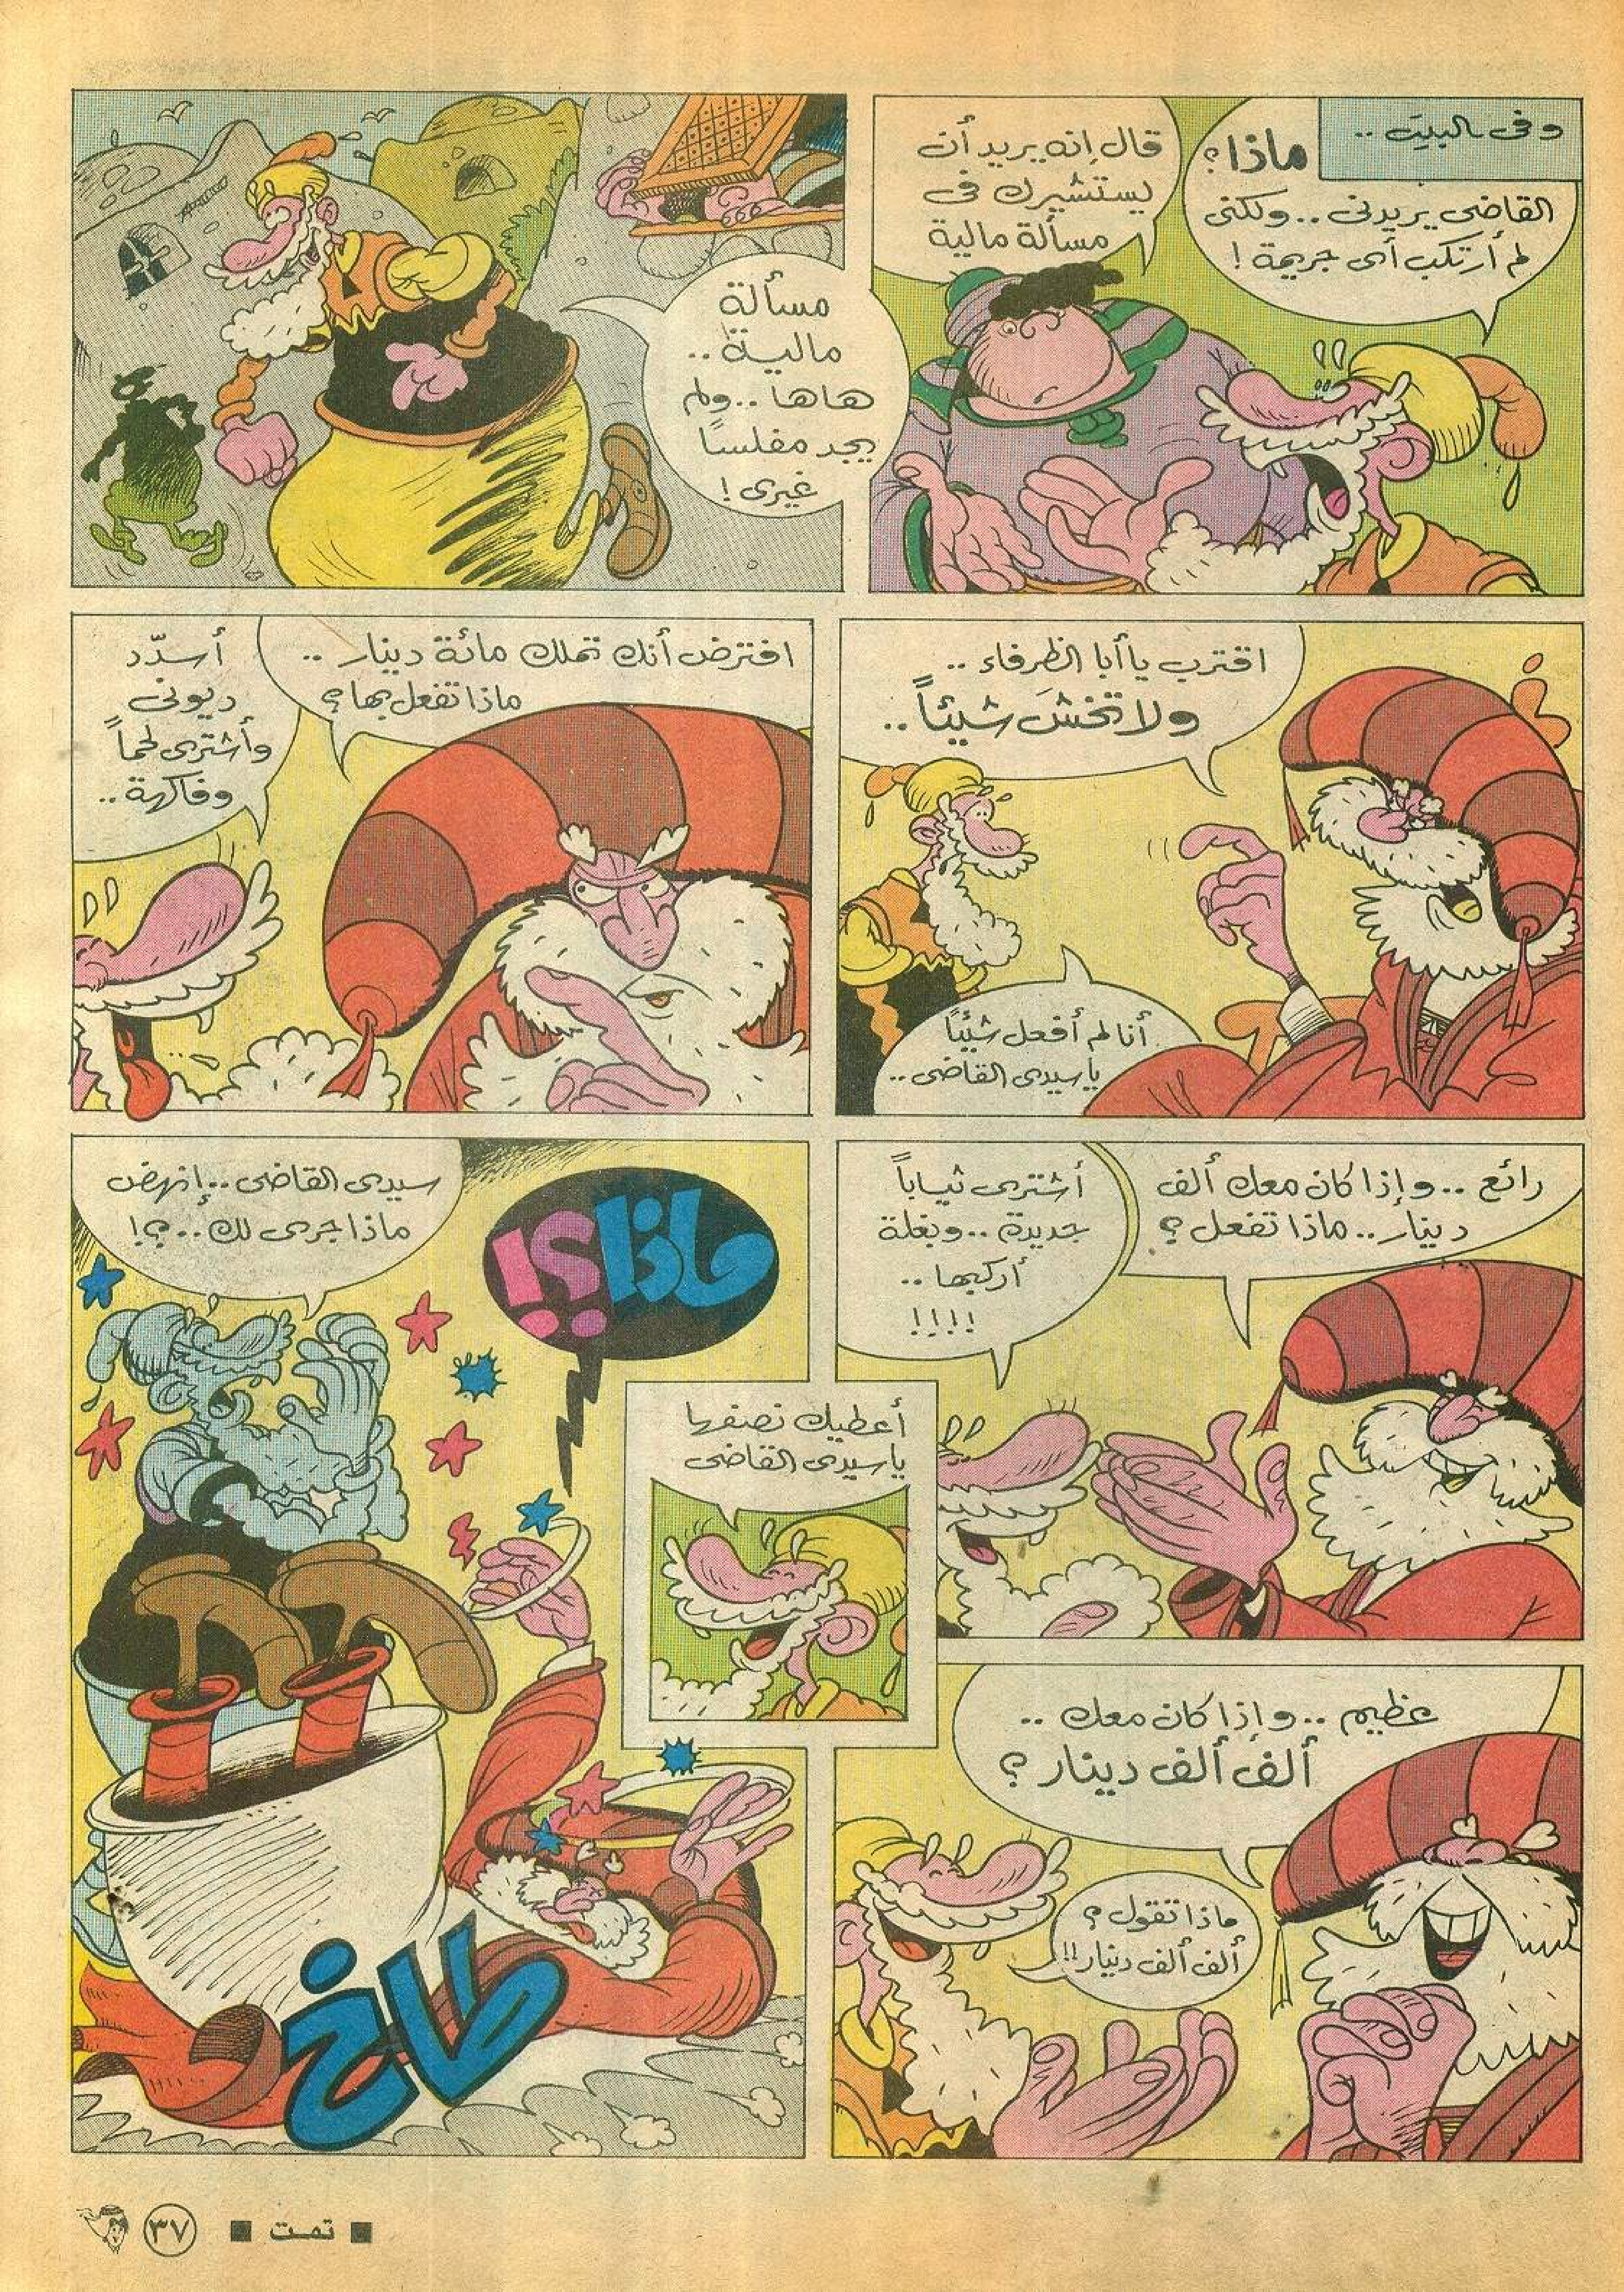 وفى البيت ..
ماذا؟
القاضى يريدنى .. ولكنى
لم أرتكب أى جريمة !
قال إنه يريد أن
يستشيرك فى
مسألة مالية
مسألة
مالية ..
هاها .. ولم
يجد مفلسًا
غيرى !
اقترب يا أبا الظرفاء ..
ولا تخشَ شيئاً ..
أنا لم أفعل شيئًا
يا سيدى القاضى ..
افترض أنك تملك مائة دينار ..
ماذا تفعل بها ؟
أسدّد
ديونى
وأشترى لحماً
وفاكهة ..
رائع .. وإذا كان معك ألف
دينار .. ماذا تفعل ؟
أشترى ثياباً
جديدة .. وبغلة
أركبها ..
!!!!
عظيم .. وإذا كان معك ..
ألف ألف دينار ؟
ماذا تقول ؟
ألف ألف دينار !!
أعطيك نصفها
يا سيدى القاضى
ماذا؟!
سيدى القاضى .. إنهض
ماذا جرى لك .. ؟!
طاخ
■ تمت ■
٣٧